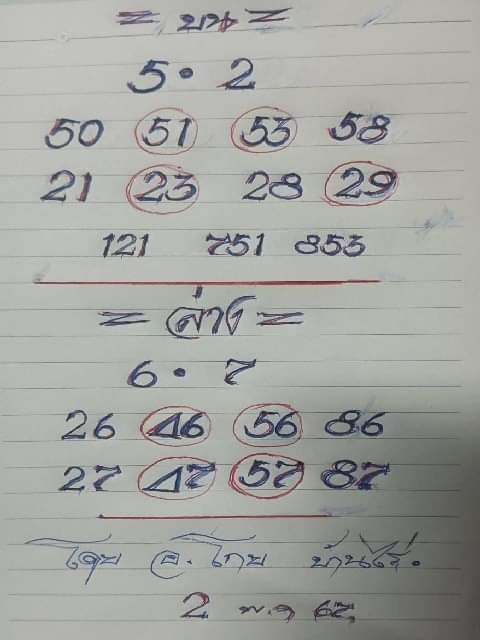 = บน =
5 • 2
50 51 53 58
21 23 28 29
121 751 853
= ล่าง =
6 • 7
26 46 56 86
27 47 57 87
โดย อ. โกย บ้านไร่.
2 พ.ค 67